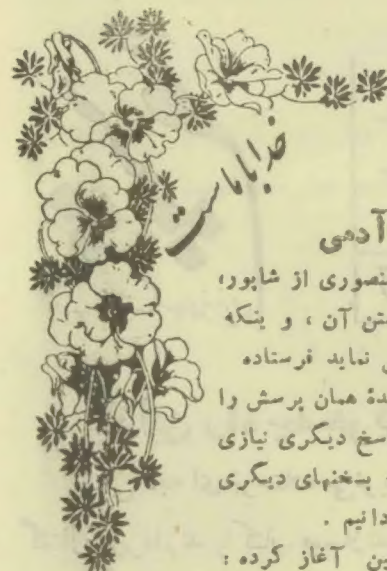 خدا با ماست
آدمی
منصوری از شاپور،
ـتن آن ، و ینکه
نماید فرستاده
ـدهٔ همان پرسش را
ـسخ دیگری نیازی
بسخنهای دیگری
دانیم .
ـین آغاز کرده :